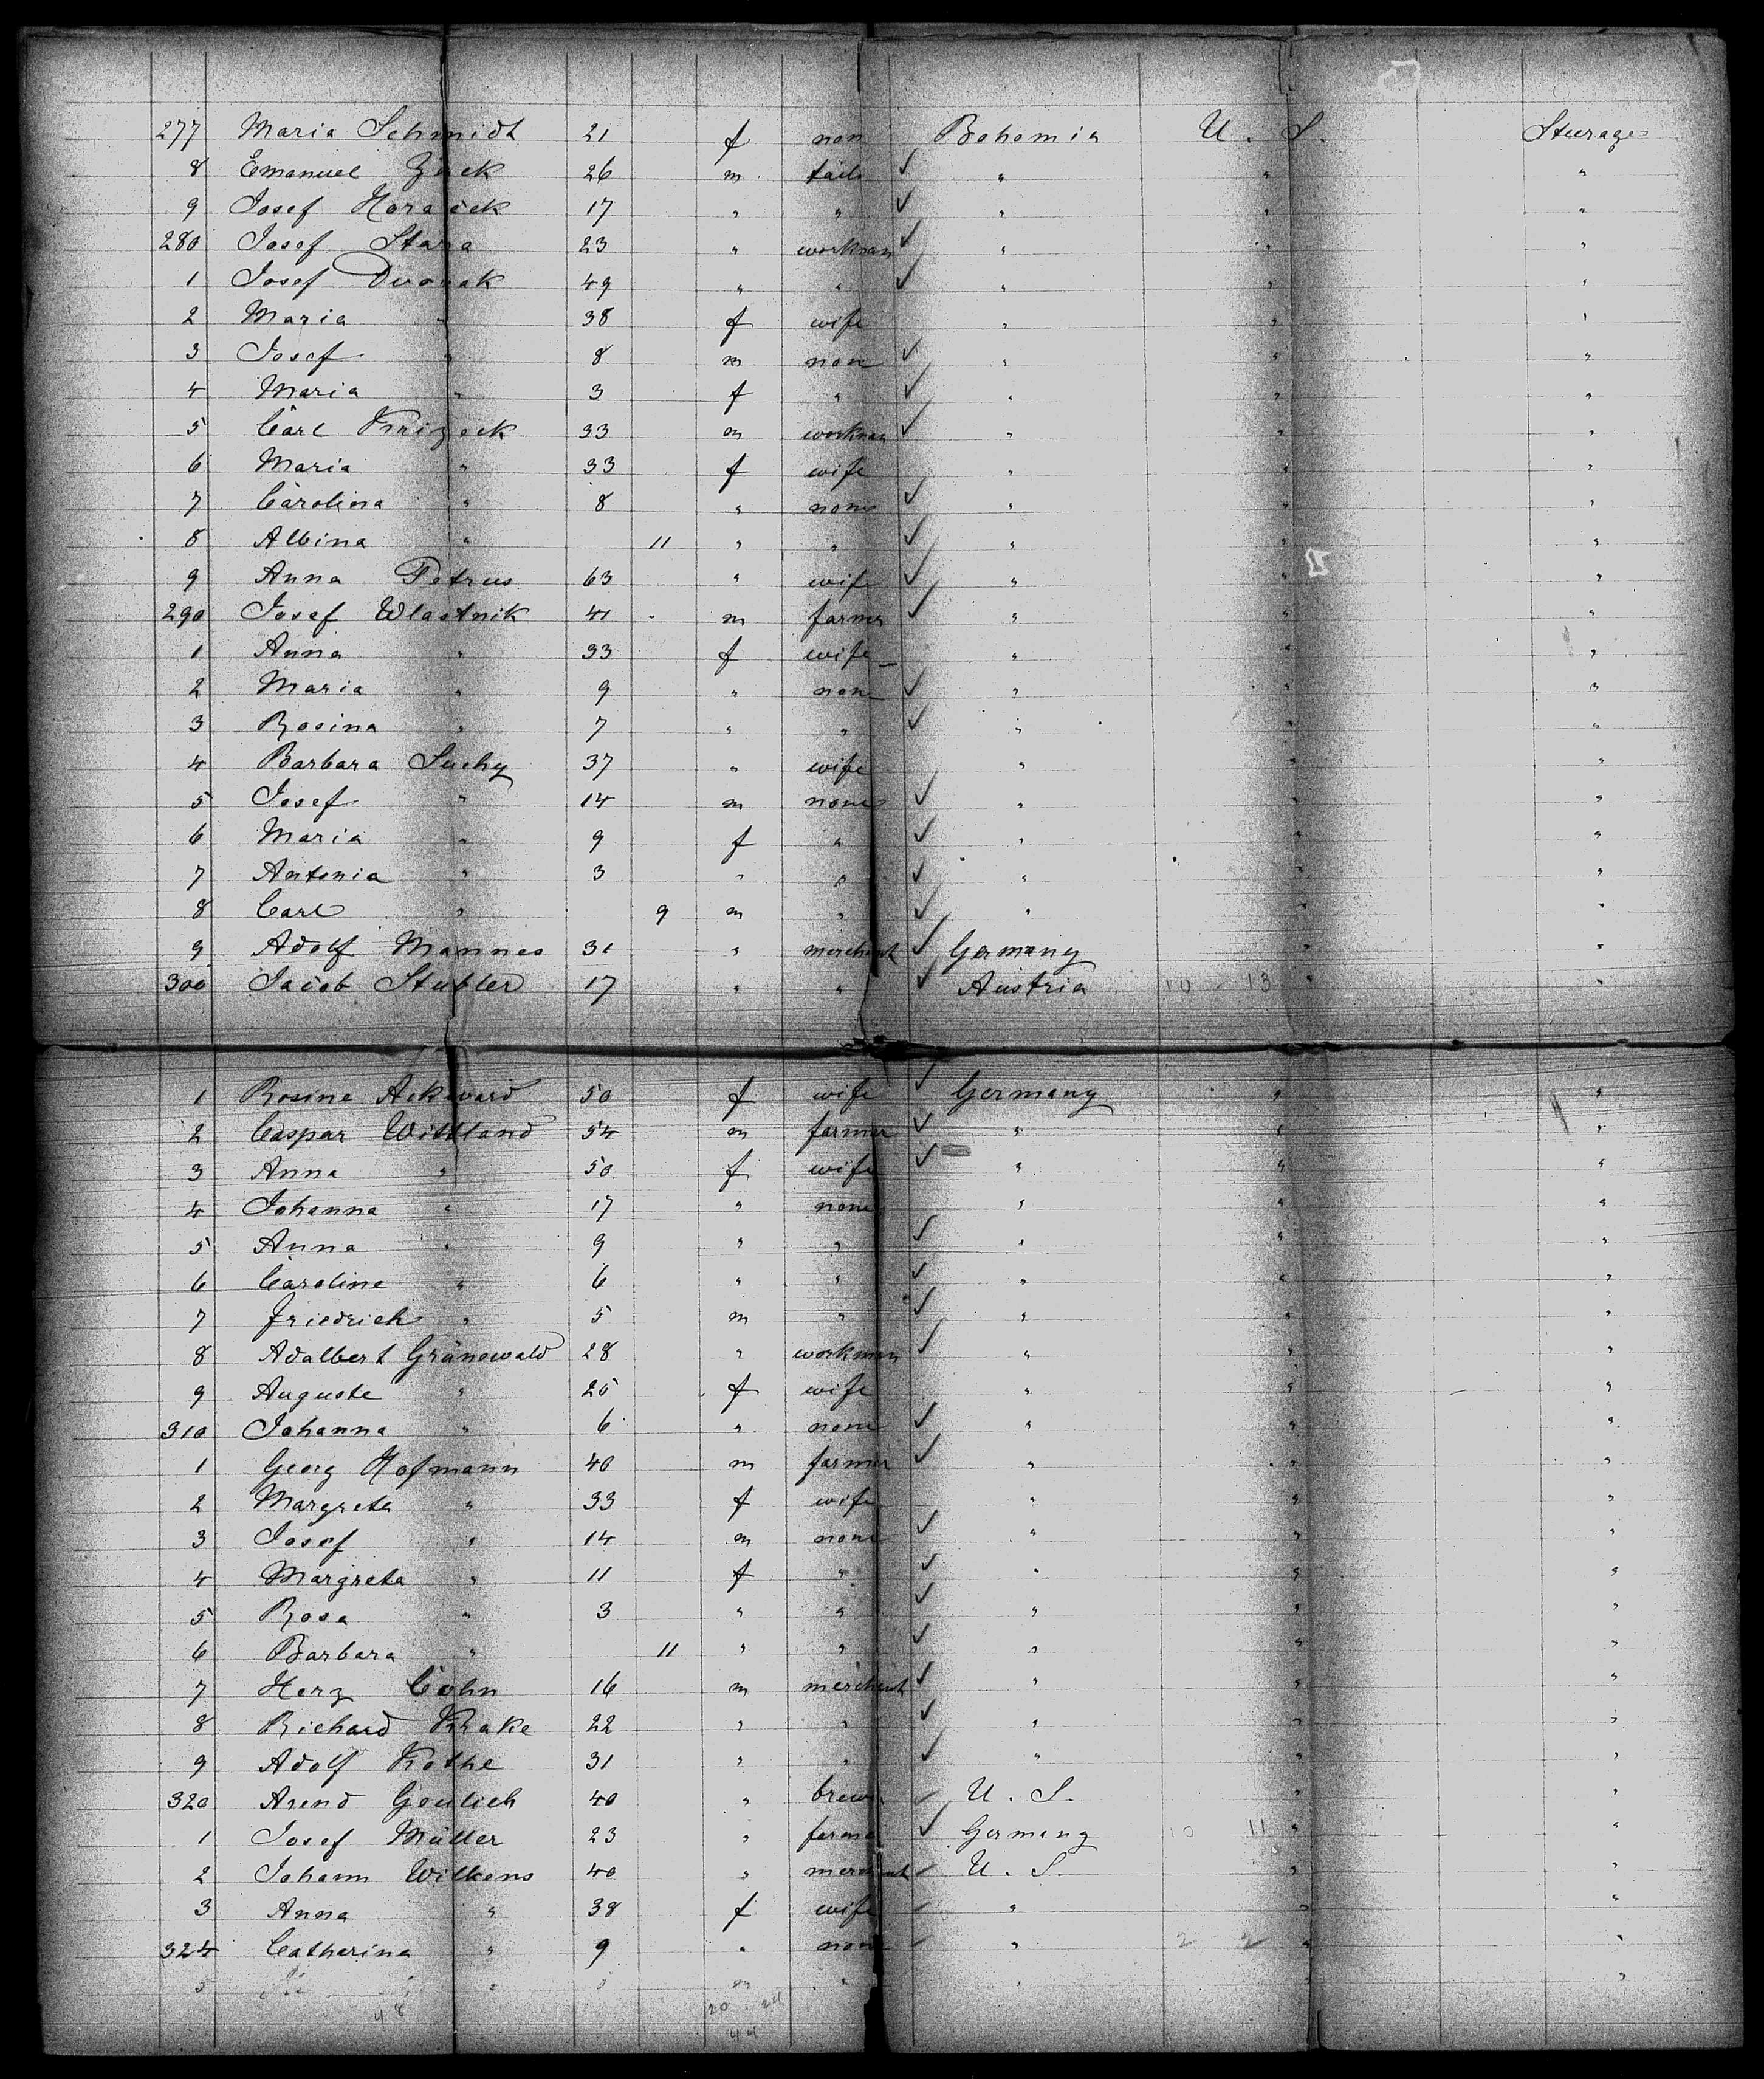 277 Maria Schmidt 21 f non Bohemia U. S. Steerage
8 Emanuel 26 m " " "
9 Josef Horacek 17 " " " " "
280 Josef Stara 23 " workman " " "
1 Josef Dvorak 49 " " " " "
2 Maria " 38 f wife " " "
3 Josef " 8 m none " " "
4 Maria " 3 f " " " "
5 Carl Krizeck 33 m workman " " "
6 Maria " 33 f wife " " "
7 Carolina " 8 " none " " "
8 Albina " 11 " " " " "
9 Anna Petrus 63 " wife " " "
290 Josef Wlastnik 41 m farmer " " "
1 Anna " 33 f wife " " "
2 Maria " 9 " none " " "
3 Rosina " 7 " " " " "
4 Barbara Suchy 37 " wife " " "
5 Josef " 14 m none " " "
6 Maria " 9 f " " " "
7 Antonia " 3 " " " " "
8 Carl " 9 m " " " "
9 Adolf Mannes 31 " merchant Germany " "
300 Jacob Stubler 17 " " Austria 10 - 13 " "
1 Rosine Ackward 50 f wife Germany " "
2 Caspar Wittland 54 m farmer " " "
3 Anna " 50 f wife " " "
4 Johanna " 17 " none " " "
5 Anna " 9 " " " " "
6 Caroline " 6 " " " " "
7 Friedrich " 5 m " " " "
8 Adalbert Grünewald 28 " workman " " "
9 Auguste " 25 f wife " " "
310 Johanna " 6 " none " " "
1 Georg Hofmann 40 m farmer " " "
2 Margreta " 33 f wife " " "
3 Josef " 14 m none " " "
4 Margreta " 11 f " " " "
5 Rosa " 3 " " " " "
6 Barbara " 11 " " " " "
7 Herz Cohn 16 m merchant " " "
8 Richard Krake 22 " " " " "
9 Adolf Kothe 31 " " " " "
320 Arend Geulich 40 " brewer U. S. " "
1 Josef Müller 23 " farmer Germany 10 11 " "
2 Johann Wilkens 40 " merchant U. S. " "
3 Anna " 38 f wife " " "
324 Catharina " 9 " none " 2 2 " "
5 " " " "
48 20 24
44